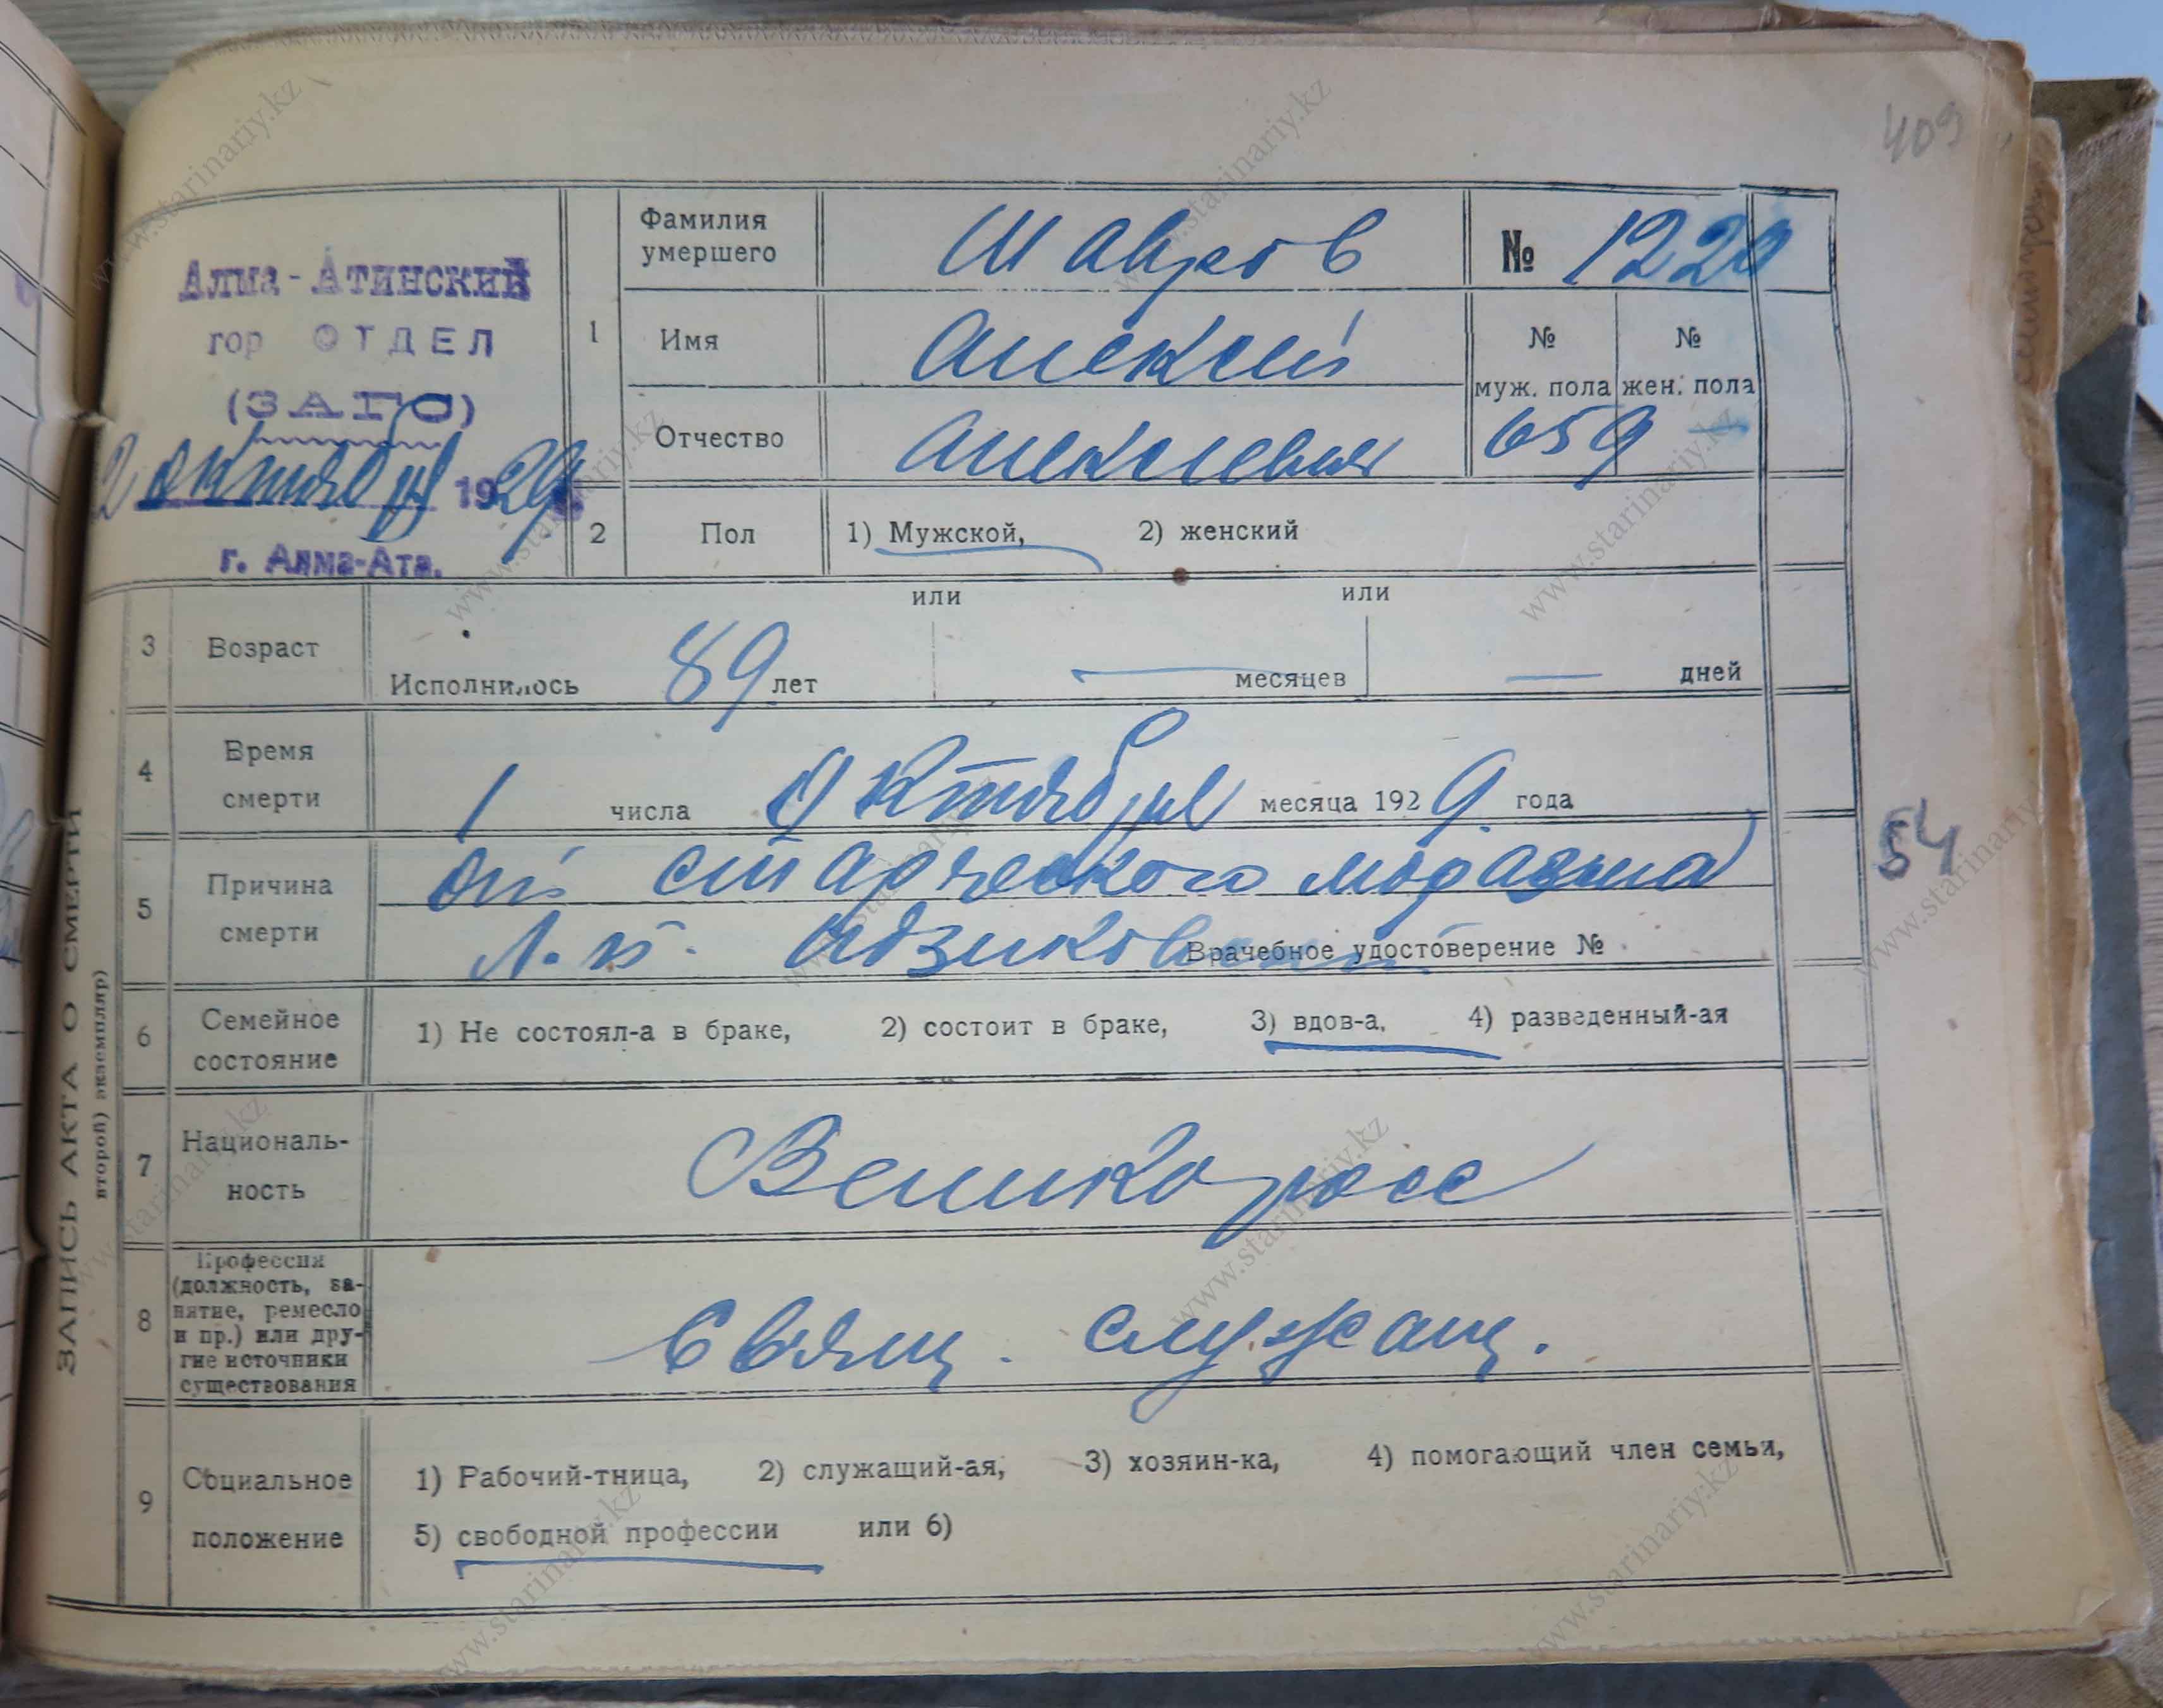 409
Алма-Атинский
гор ОТДЕЛ
(ЗАГС)
2 октября 1929
г. Алма-Ата.
ЗАПИСЬ АКТА О СМЕРТИ
второй) экземпляр)
1
Фамилия умершего Шавров
№ 1220
Имя Алексей
№ муж. пола 659
№ жен. пола —
Отчество Алексеевич
2 Пол 1) Мужской, 2) женский
3 Возраст Исполнилось 89 лет или — месяцев или — дней
4 Время смерти 1 числа Октября месяца 1929 года
5 Причина смерти от старческогоморазма
Врачебное удостоверение №
54
6 Семейное состояние 1) Не состоял-а в браке, 2) состоит в браке, 3) вдов-а, 4) разведенный-ая
7 Националь-ность Великоросс
8 Профессия (должность, за-нятие, ремесло и пр.) или дру-гие источники существования Свящ. служащ.
9 Социальное положение 1) Рабочий-тница, 2) служащий-ая, 3) хозяин-ка, 4) помогающий член семьи,
5) свободной профессии или 6)
www.starinariy.kz